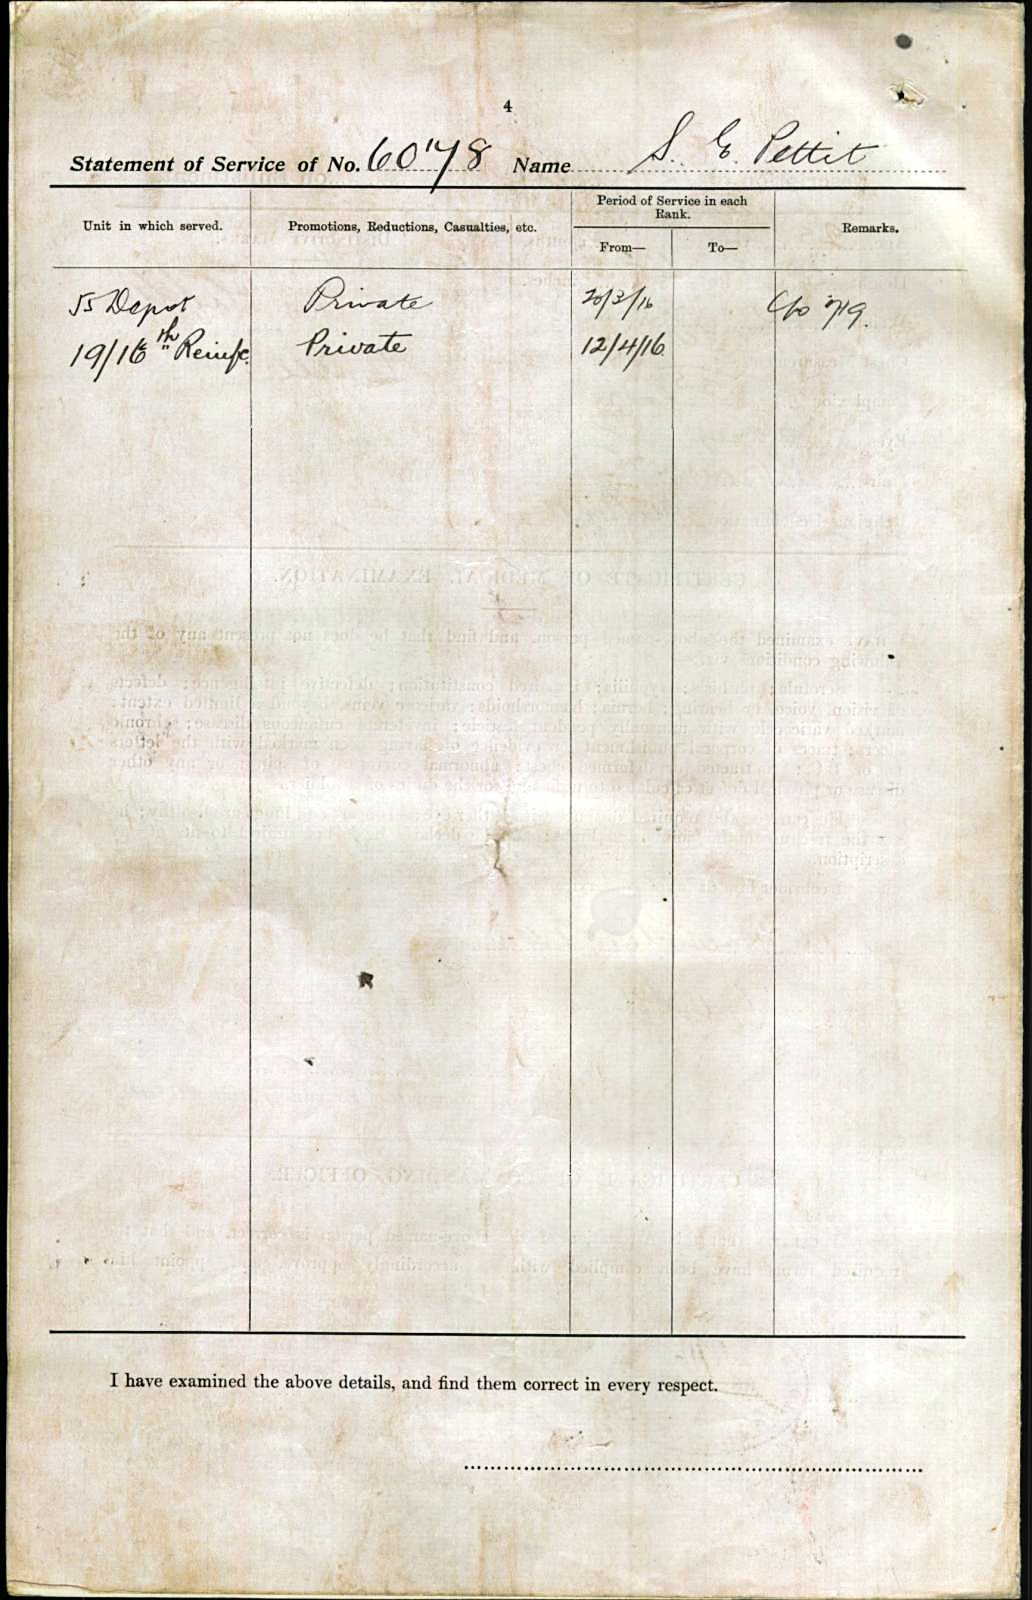 4
Statement of Service of No. 6078 Name S. G. Pettit
Unit in which served.
Promotions, Reductions, Casualties, etc.
Period of Service in each Rank.
From—
To—
Remarks.
55 Depot Private 20/3/16
19/16th Reinfc. Private 12/4/16
I have examined the above details, and find them correct in every respect.